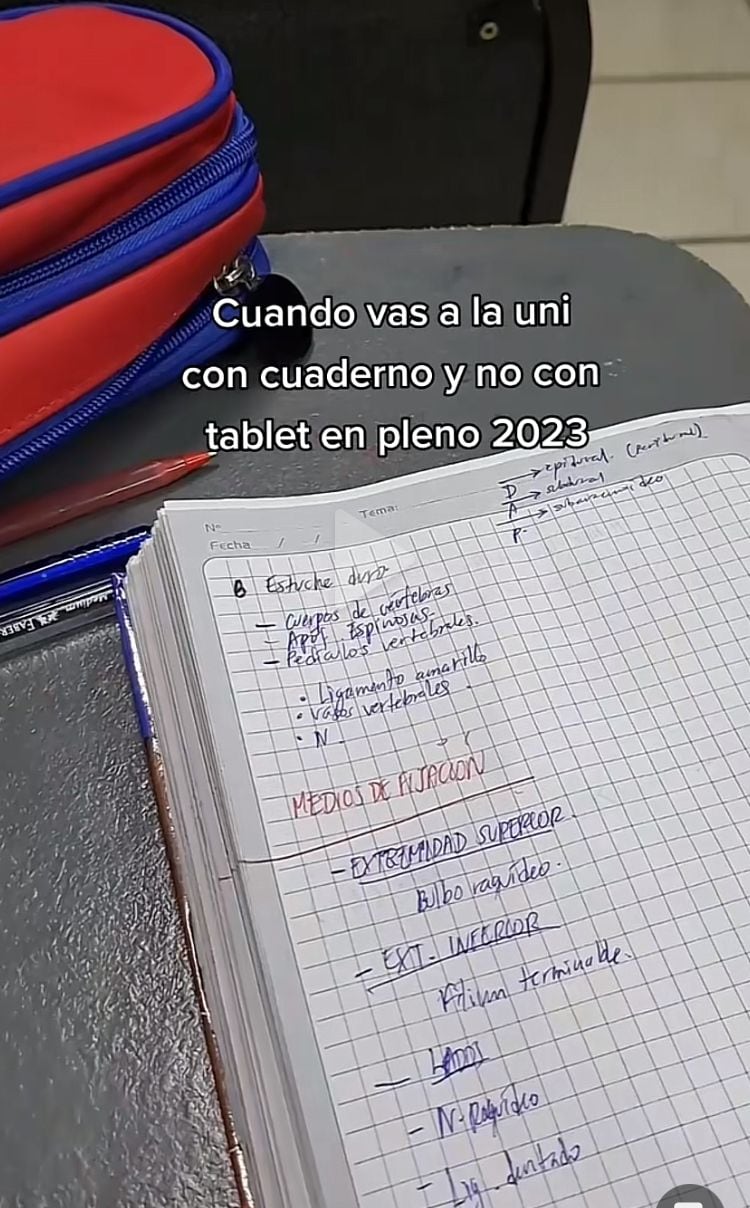 Cuando vas a la uni
con cuaderno y no con
tablet en pleno 2023
N°
Tema:
Fecha / /
D → epidural.
A → subdural
P. → subaracnoideo
B Estuche duro
- Cuerpos de vértebras
- Apóf. Espinosas.
- Pedículos vertebrales.
• Ligamento amarillo
• Vasos vertebrales.
• N.
MEDIOS DE FIJACIÓN
- EXTREMIDAD SUPERIOR.
Bulbo raquídeo.
- EXT. INFERIOR
Filium terminable.
- LADOS
- N. Raquídeo
- Lig. dentado
Medium
FABER